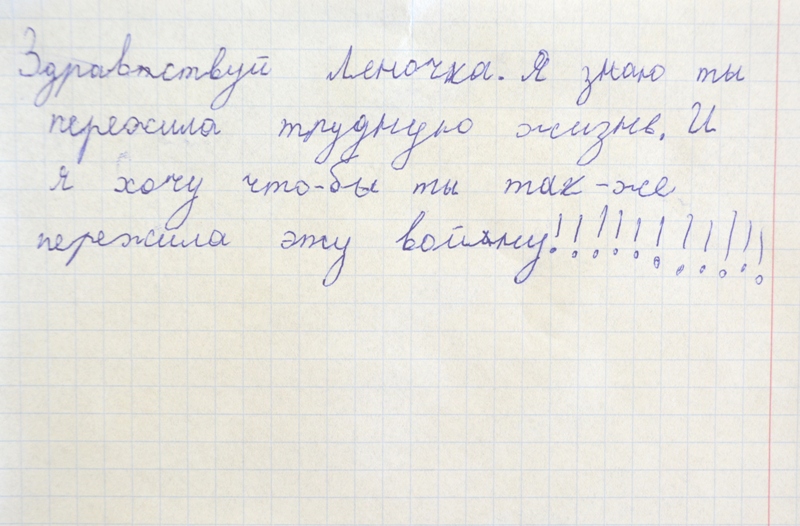 Здравтствуй Леночка. Я знаю ты
пережила трудную жизнь. И
я хочу что-бы ты так-же
пережила эту войну!!!!!!!!!!!!